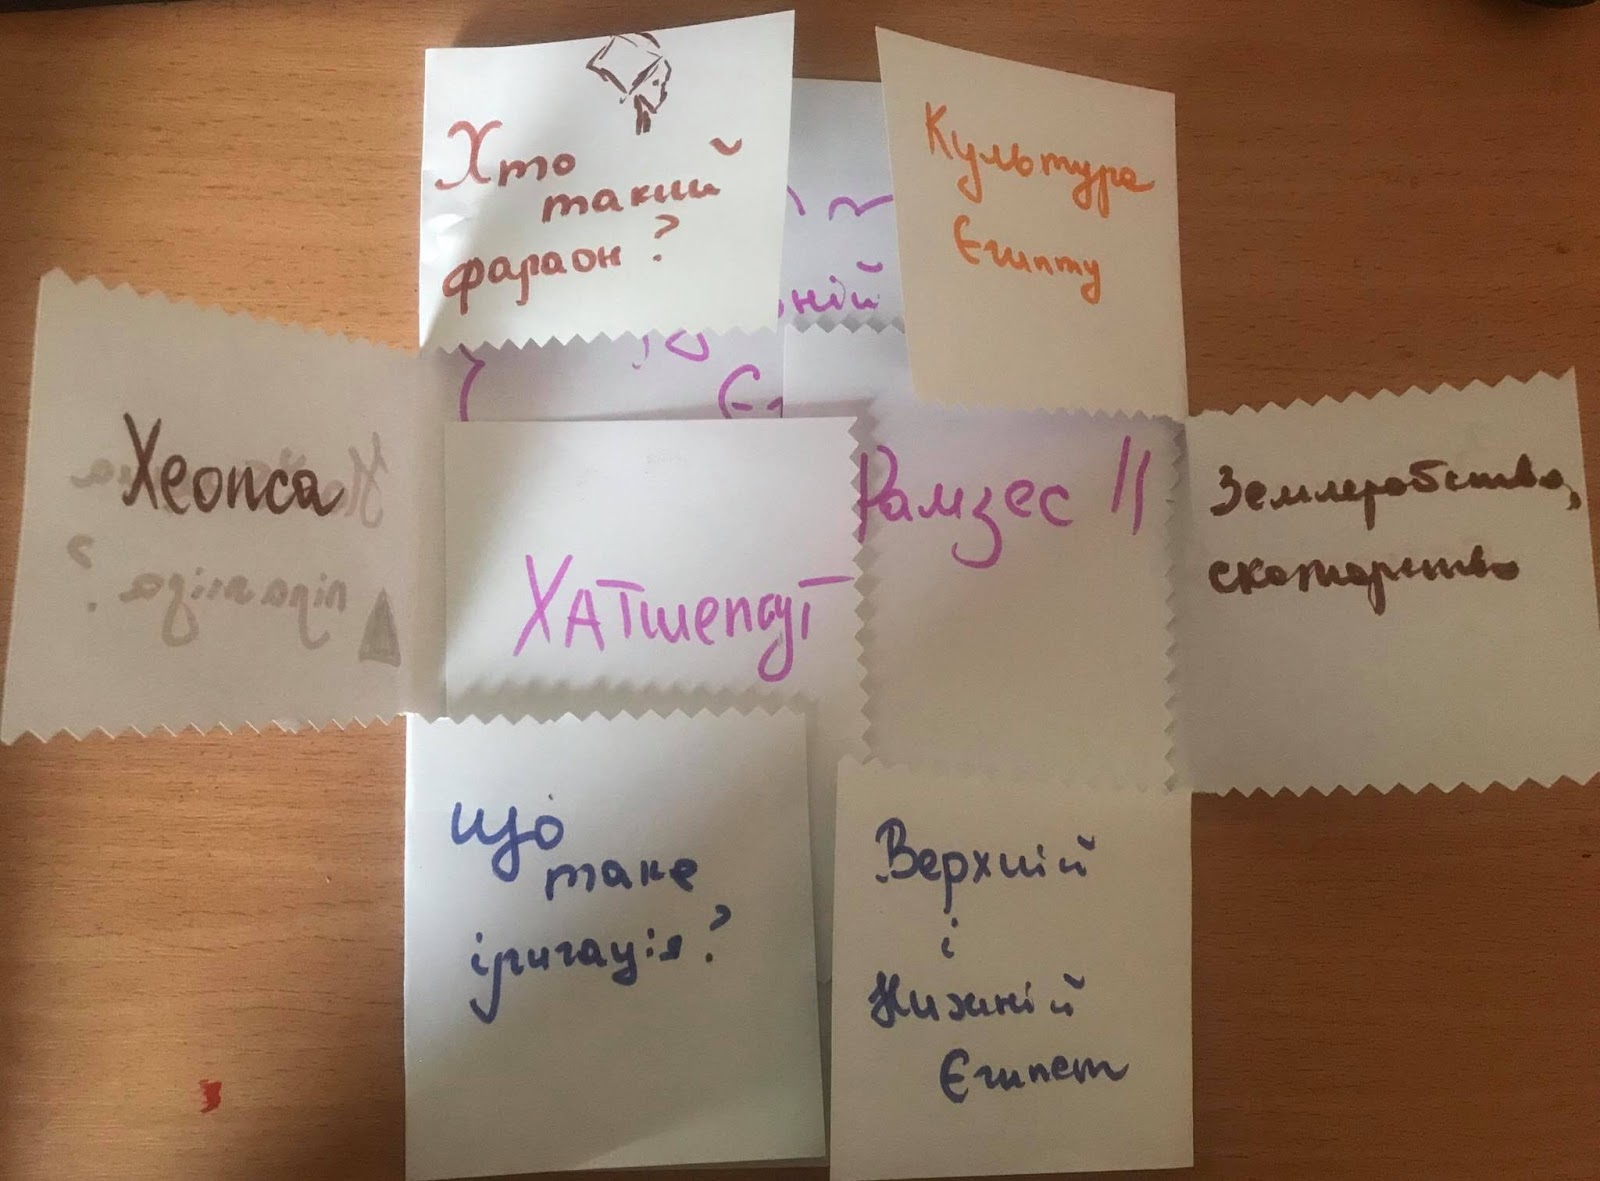 Хто
такий
фараон?
Культура
Єгипту
ній
Хеопса
піраміда
?
Хатшепсут
Рамзес II
Землеробство,
скотарство
Що
таке
іригація?
Верхній
і
Нижній
Єгипет